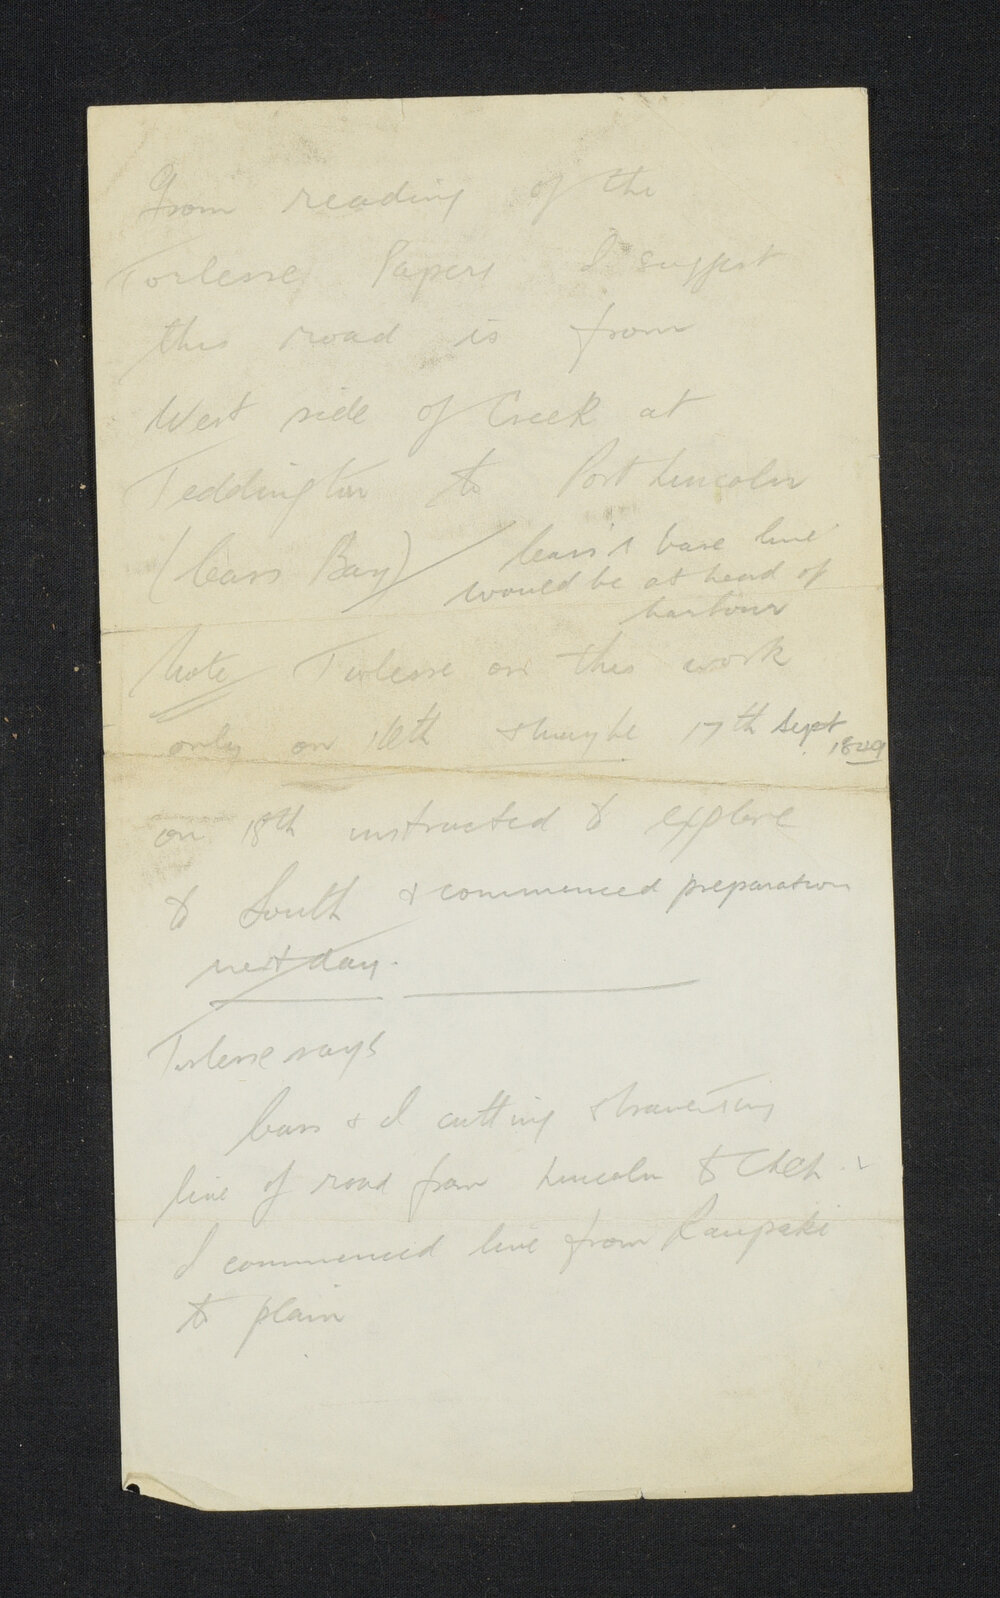 From reading of the
Torlesse Papers I suggest
this road is from
West side of Creek at
Teddington to Port Lincoln
(Cass Bay) Cass's base line
would be at head of
harbour
Note Torlesse on this work
only on 16th & maybe 17th Sept
1849
on 18th instructed to explore
to South & commenced preparation
next day.
Torlesse says
Cass & I cutting & traversing
line of road from Lincoln to ChCh.
I commenced line from Raupaki
to plain